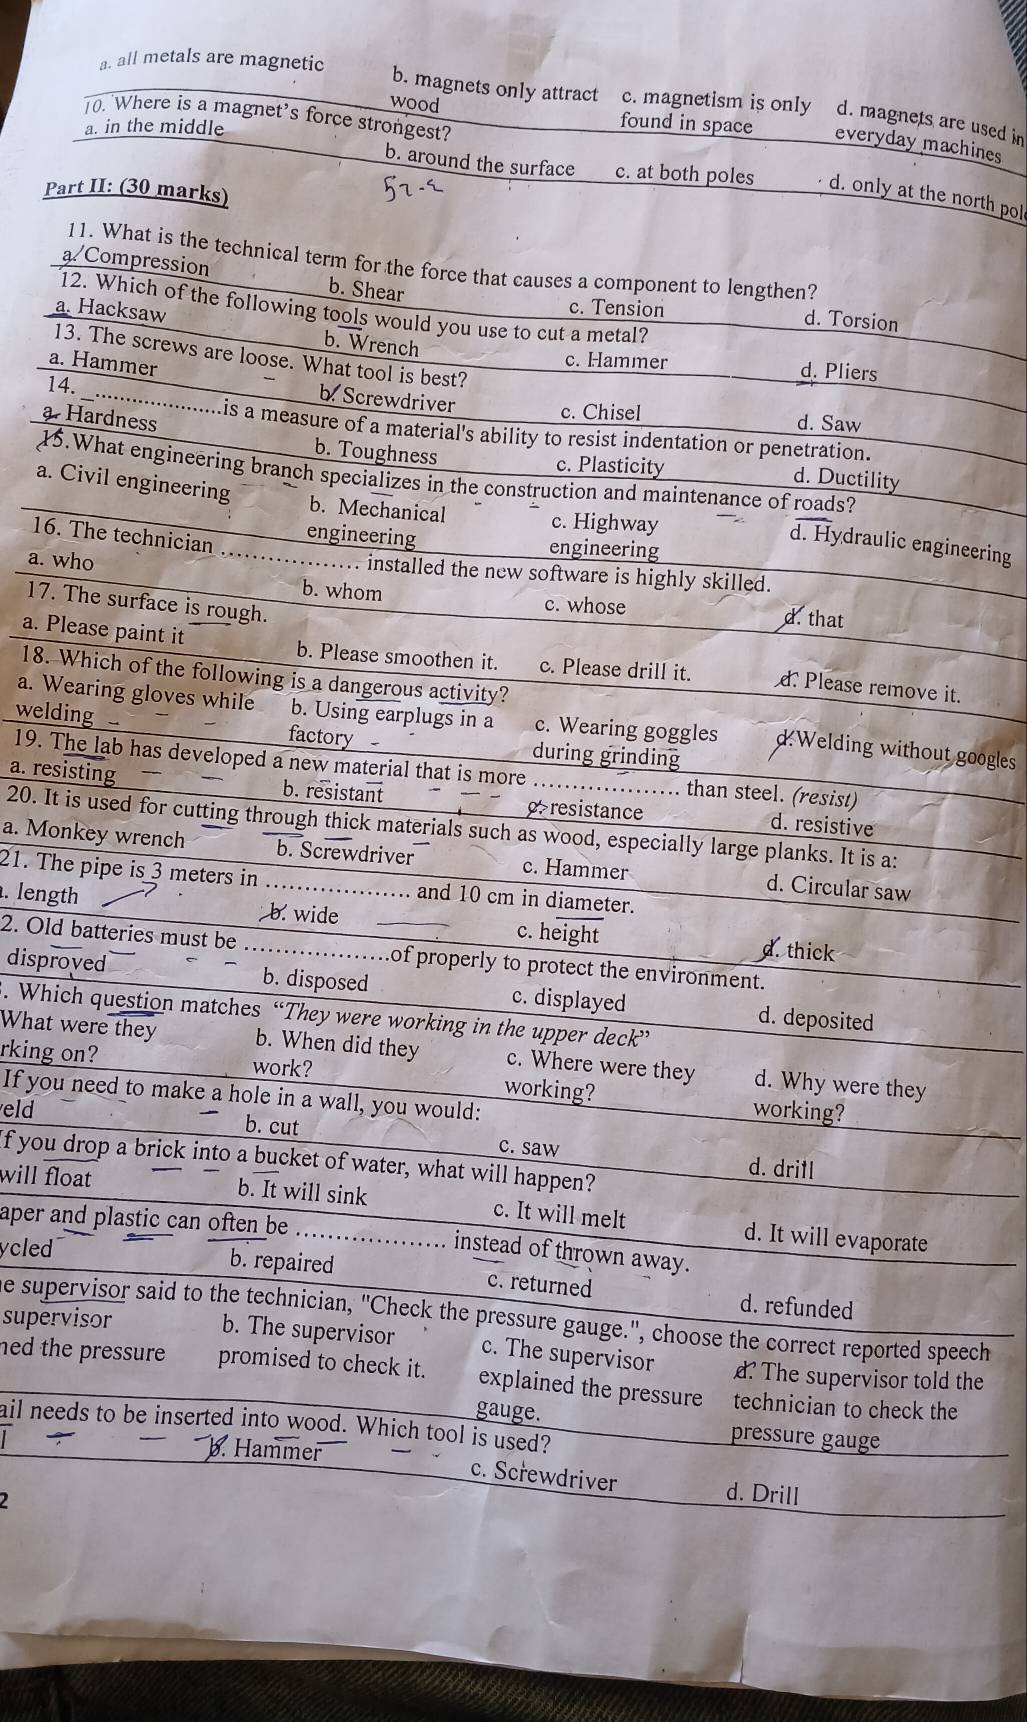 a. all metals are magnetic b. magnets only attract c. magnetism is only d. magnets are used in
wood found in space everyday machines
10. Where is a magnet's force strongest?
a. in the middle b. around the surface c. at both poles d. only at the north pol
Part II: (30 marks)
11. What is the technical term for the force that causes a component to lengthen?
a. Compression b. Shear c. Tension d. Torsion
12. Which of the following tools would you use to cut a metal?
a. Hacksaw b. Wrench c. Hammer d. Pliers
13. The screws are loose. What tool is best?
a. Hammer b. Screwdriver c. Chisel d. Saw
14. ......................is a measure of a material's ability to resist indentation or penetration.
a. Hardness b. Toughness c. Plasticity d. Ductility
15. What engineering branch specializes in the construction and maintenance of roads?
a. Civil engineering b. Mechanical c. Highway d. Hydraulic engineering
engineering engineering
16. The technician .................... installed the new software is highly skilled.
a. who b. whom c. whose d. that
17. The surface is rough.
a. Please paint it b. Please smoothen it. c. Please drill it. d. Please remove it.
18. Which of the following is a dangerous activity?
a. Wearing gloves while b. Using earplugs in a c. Wearing goggles d. Welding without googles
welding factory during grinding
19. The lab has developed a new material that is more .................... than steel. (resist)
a. resisting b. resistant c. resistance d. resistive
20. It is used for cutting through thick materials such as wood, especially large planks. It is a:
a. Monkey wrench b. Screwdriver c. Hammer d. Circular saw
21. The pipe is 3 meters in .................... and 10 cm in diameter.
. length b. wide c. height d. thick
2. Old batteries must be ....................of properly to protect the environment.
disproved b. disposed c. displayed d. deposited
. Which question matches "They were working in the upper deck"
What were they b. When did they c. Where were they d. Why were they
rking on? work? working? working?
If you need to make a hole in a wall, you would:
eld b. cut c. saw d. drill
If you drop a brick into a bucket of water, what will happen?
will float b. It will sink c. It will melt d. It will evaporate
aper and plastic can often be .................... instead of thrown away.
ycled b. repaired c. returned d. refunded
e supervisor said to the technician, "Check the pressure gauge.", choose the correct reported speech
supervisor b. The supervisor c. The supervisor d. The supervisor told the
ned the pressure promised to check it. explained the pressure technician to check the
gauge. pressure gauge
ail needs to be inserted into wood. Which tool is used?
b. Hammer c. Screwdriver d. Drill
2